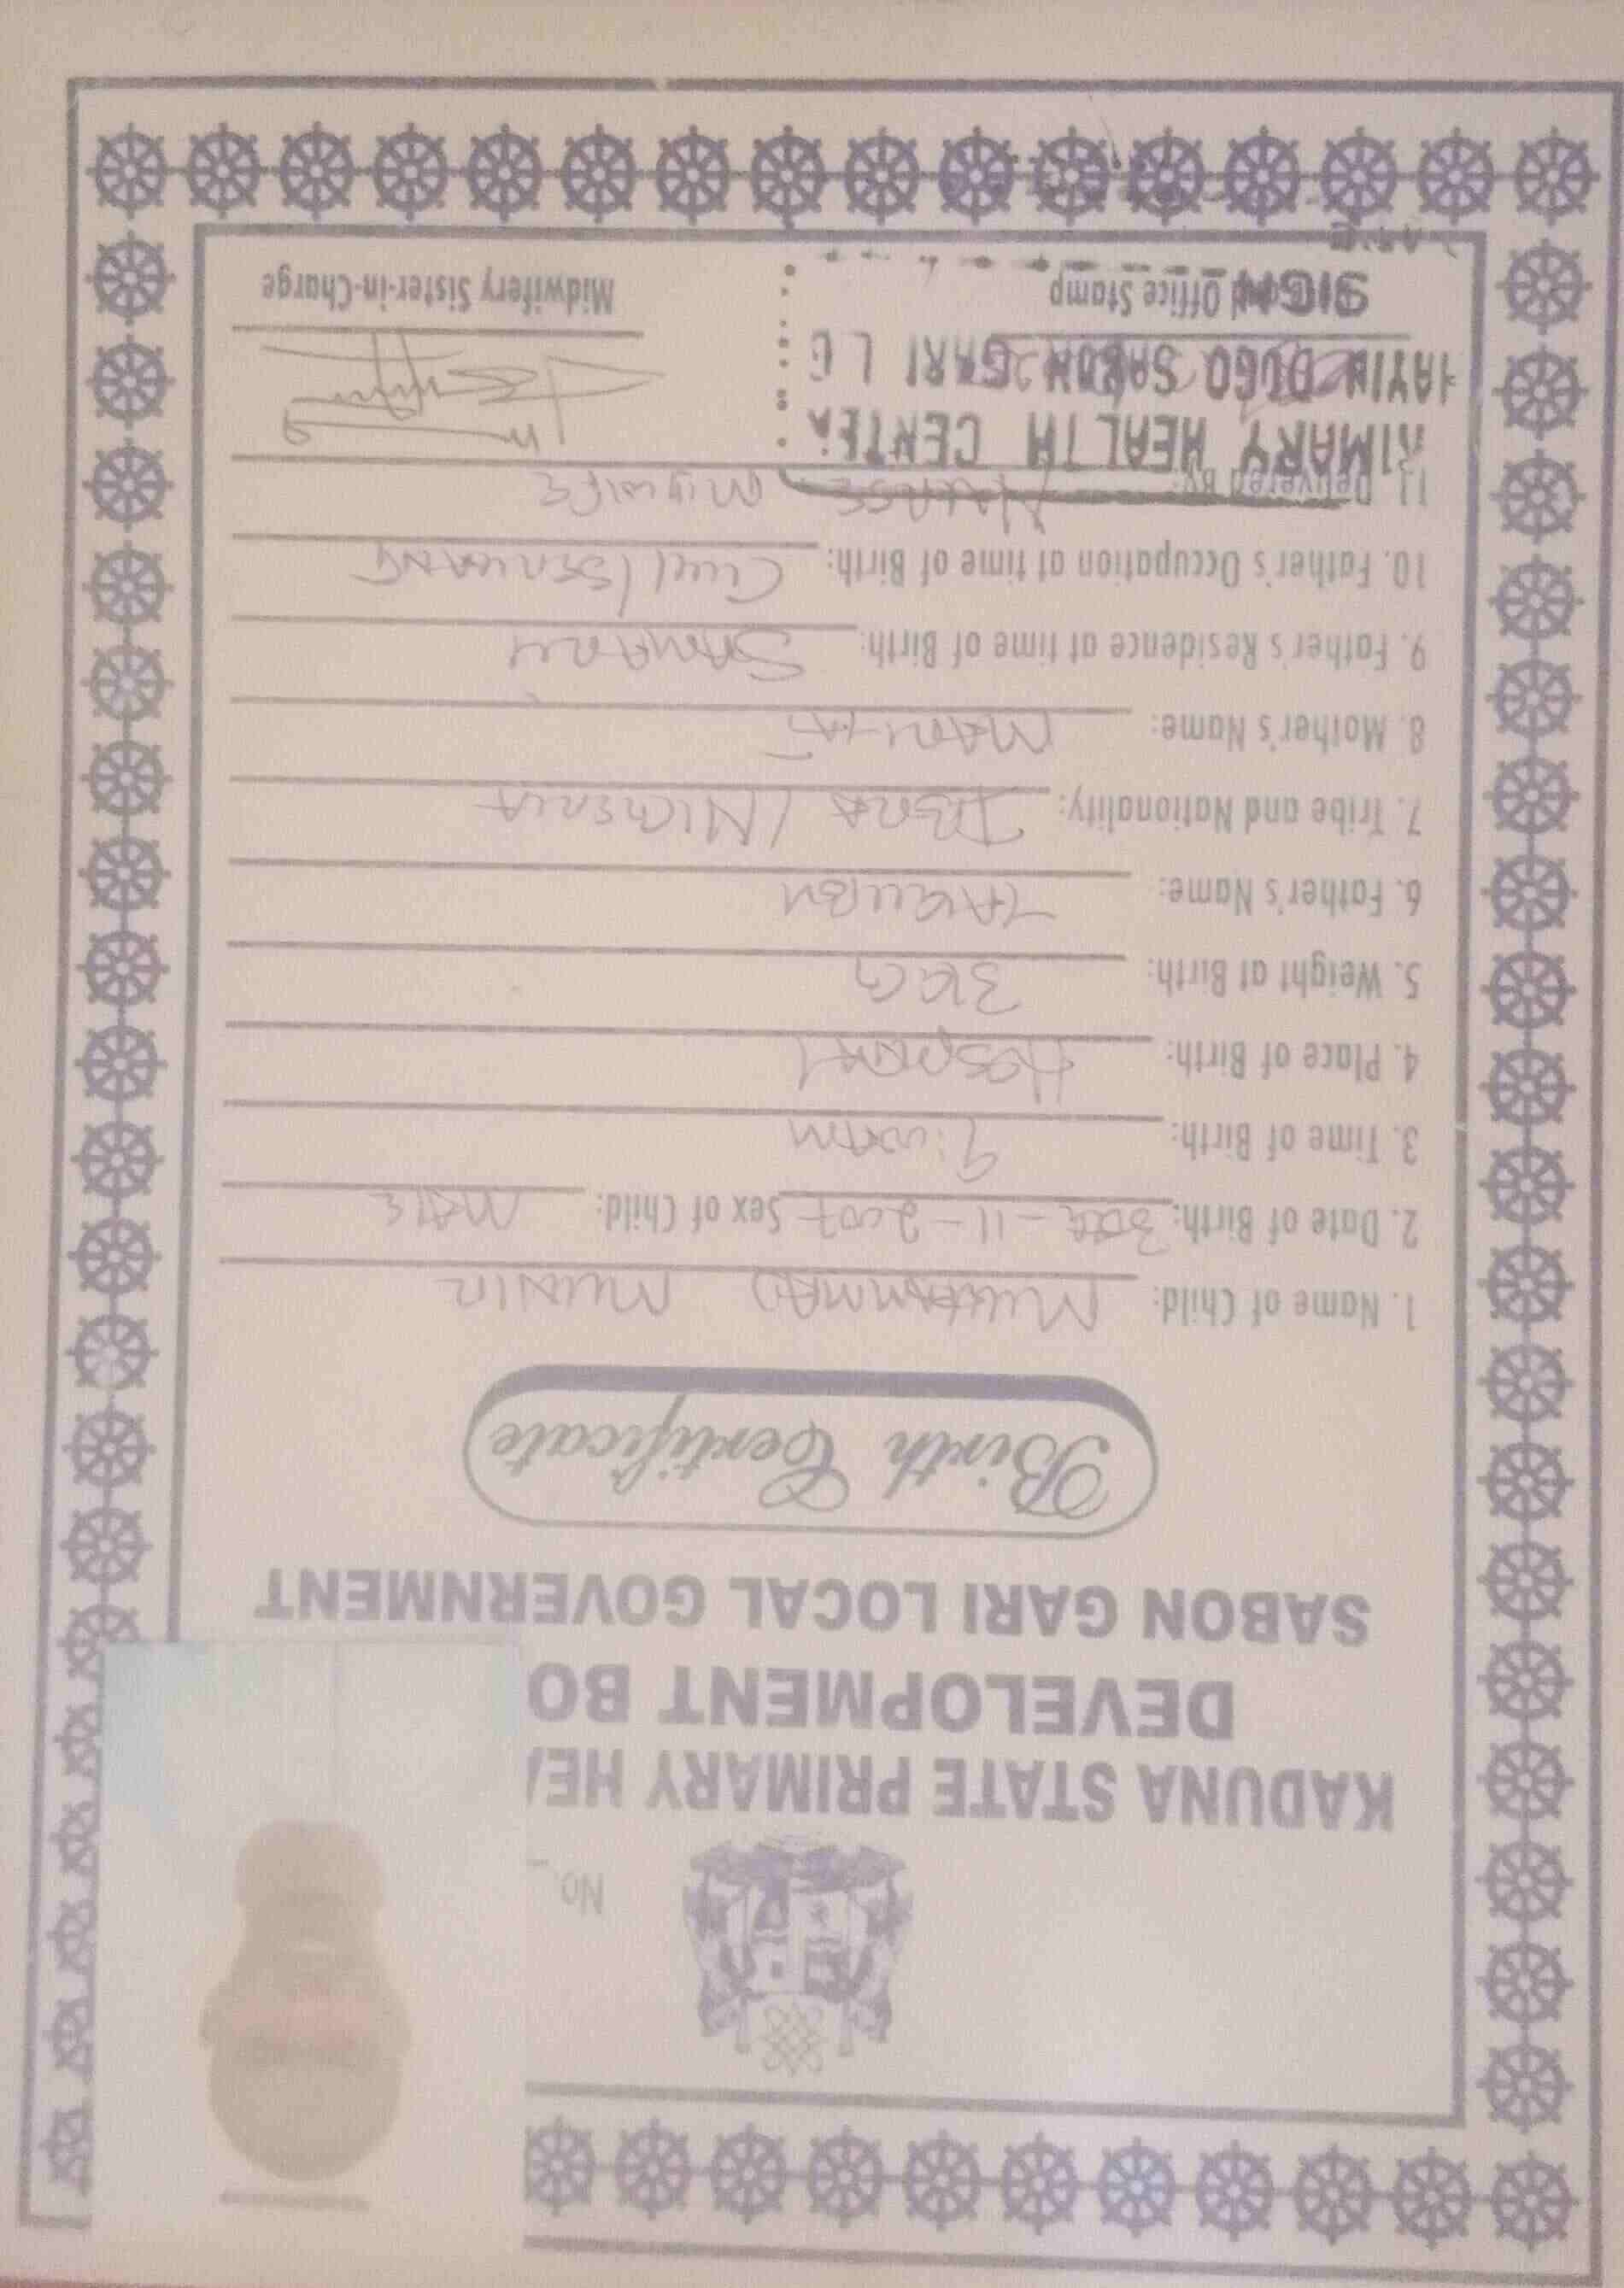 No.
KADUNA STATE PRIMARY HEA
DEVELOPMENT BO
SABON GARI LOCAL GOVERNMENT
Birth Certificate
1. Name of Child: MUHAMMAD MUNIR
2. Date of Birth: -11-2007 Sex of Child: MALE
3. Time of Birth:
4. Place of Birth: HOSPITAL
5. Weight at Birth: 3KG
6. Father's Name: YAKUBU
7. Tribe and Nationality: / NIGERIA
8. Mother's Name:
9. Father's Residence at time of Birth: SAMARU
10. Father's Occupation at time of Birth: CIVIL SERVANT
11. Delivered By: NURSE MIDWIFE
RIMARY HEALTH CENTE
HAYIN DOGO SABON GARI L G
SIGN
Office Stamp
Midwifery Sister-in-Charge